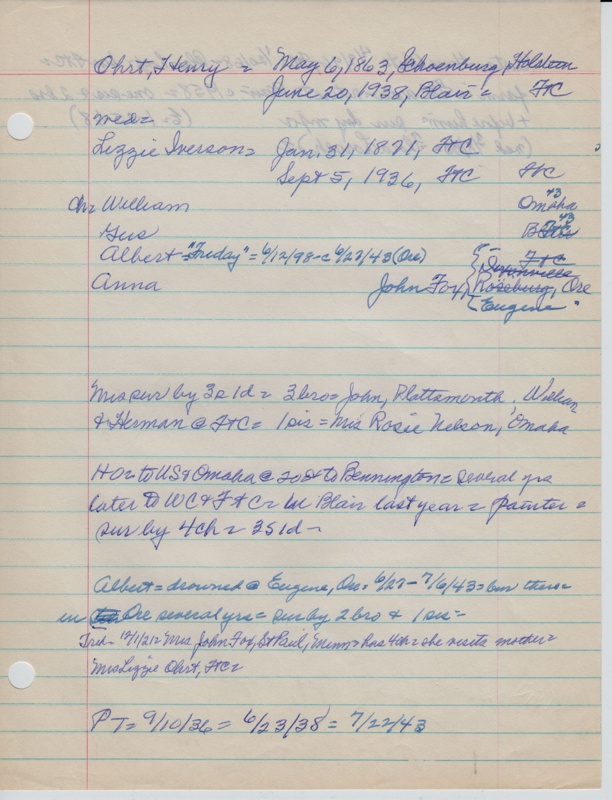 Ohrt, Henry = May 6, 1863, Schoenburg, Holstein
June 20, 1938, Blair = FtC
med=
Lizzie Iverson = Jan. 31, 1871, FtC
Sept 5, 1936, FtC FtC
Ch= William Omaha 43
Gus 43
Albert = "Friday" = 6/12/98 - c 6/27/43 (Ore) FtC
Anna John Fox, Roseburg, Ore
Eugene
Mrs sur by 3s 1d = 3 bro = John, Plattsmouth, William
& Herman @ FtC = 1 sis = Mrs Rosie Nelson, Omaha
H = to US & Omaha @ 20 = to Bennington = several yrs
later to WC & FtC = in Blair last year = painter =
sur by 4 ch = 3s 1d -
Albert = drowned @ Eugene, Ore = 6/27 - 7/6/43 = there =
in Ore several yrs = sur by 2 bro & 1 sis =
Trib - 12/1/21 = Mrs John Fox, St Paul, Minn = has 4ch = she visits mother =
Mrs Lizzie Ohrt, FtC =
PT = 9/10/36 = 6/23/38 = 7/22/43